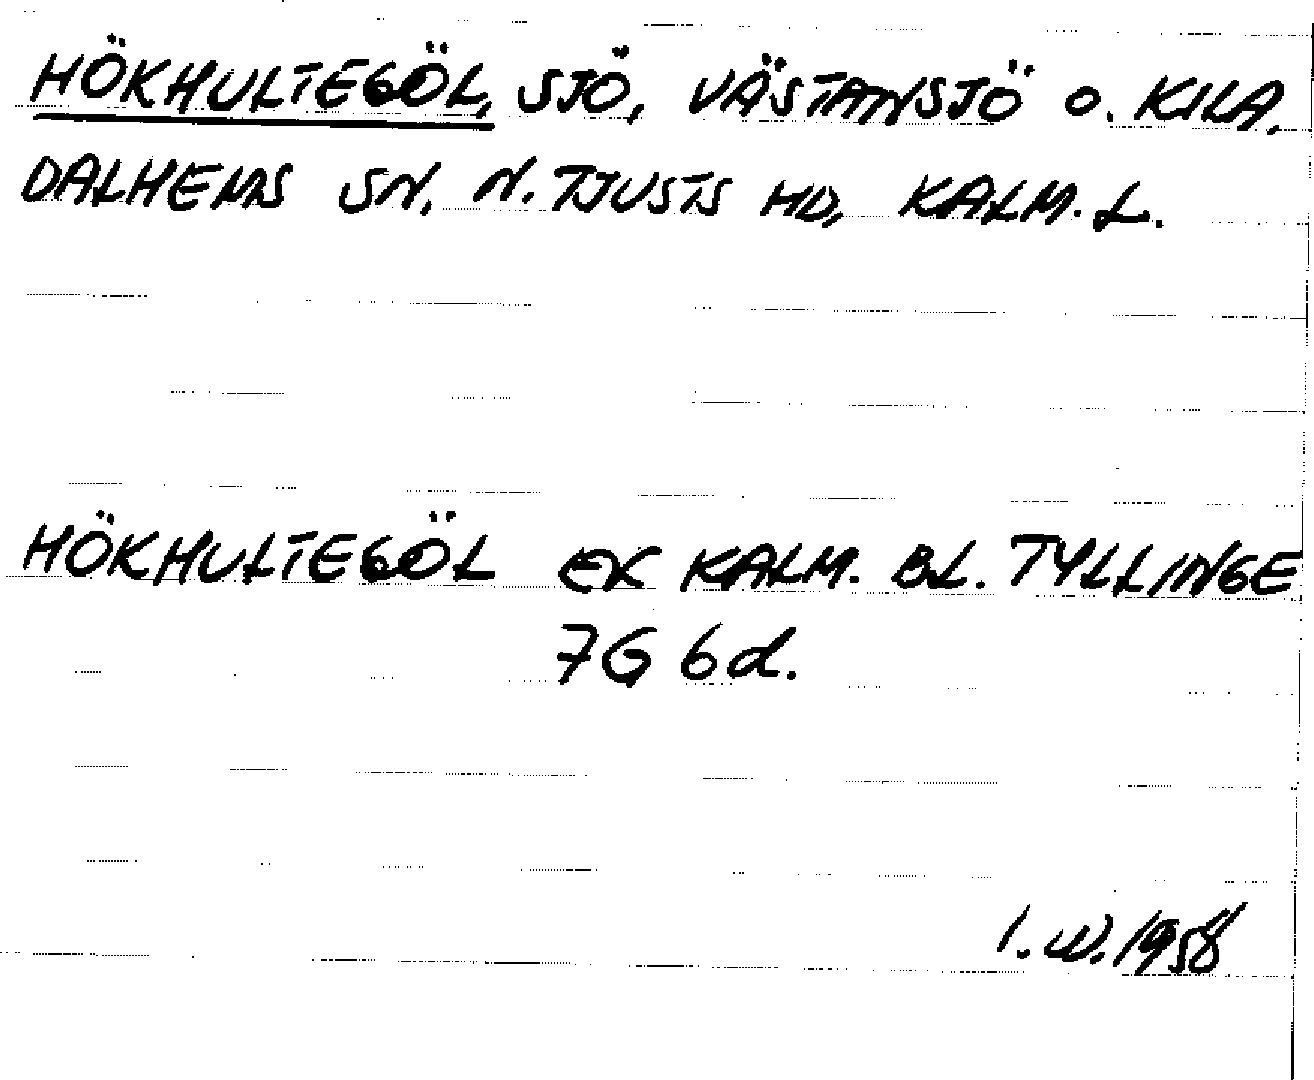 HÖKHULTEGÖL, SJÖ, VÄSTANSJÖ o. KILA,
DALHEMS SN, N. TJUSTS HD, KALM. L.
HÖKHULTEGÖL EK KALM. BL. TYLLINGE
7G 6d.
I. W. 1958